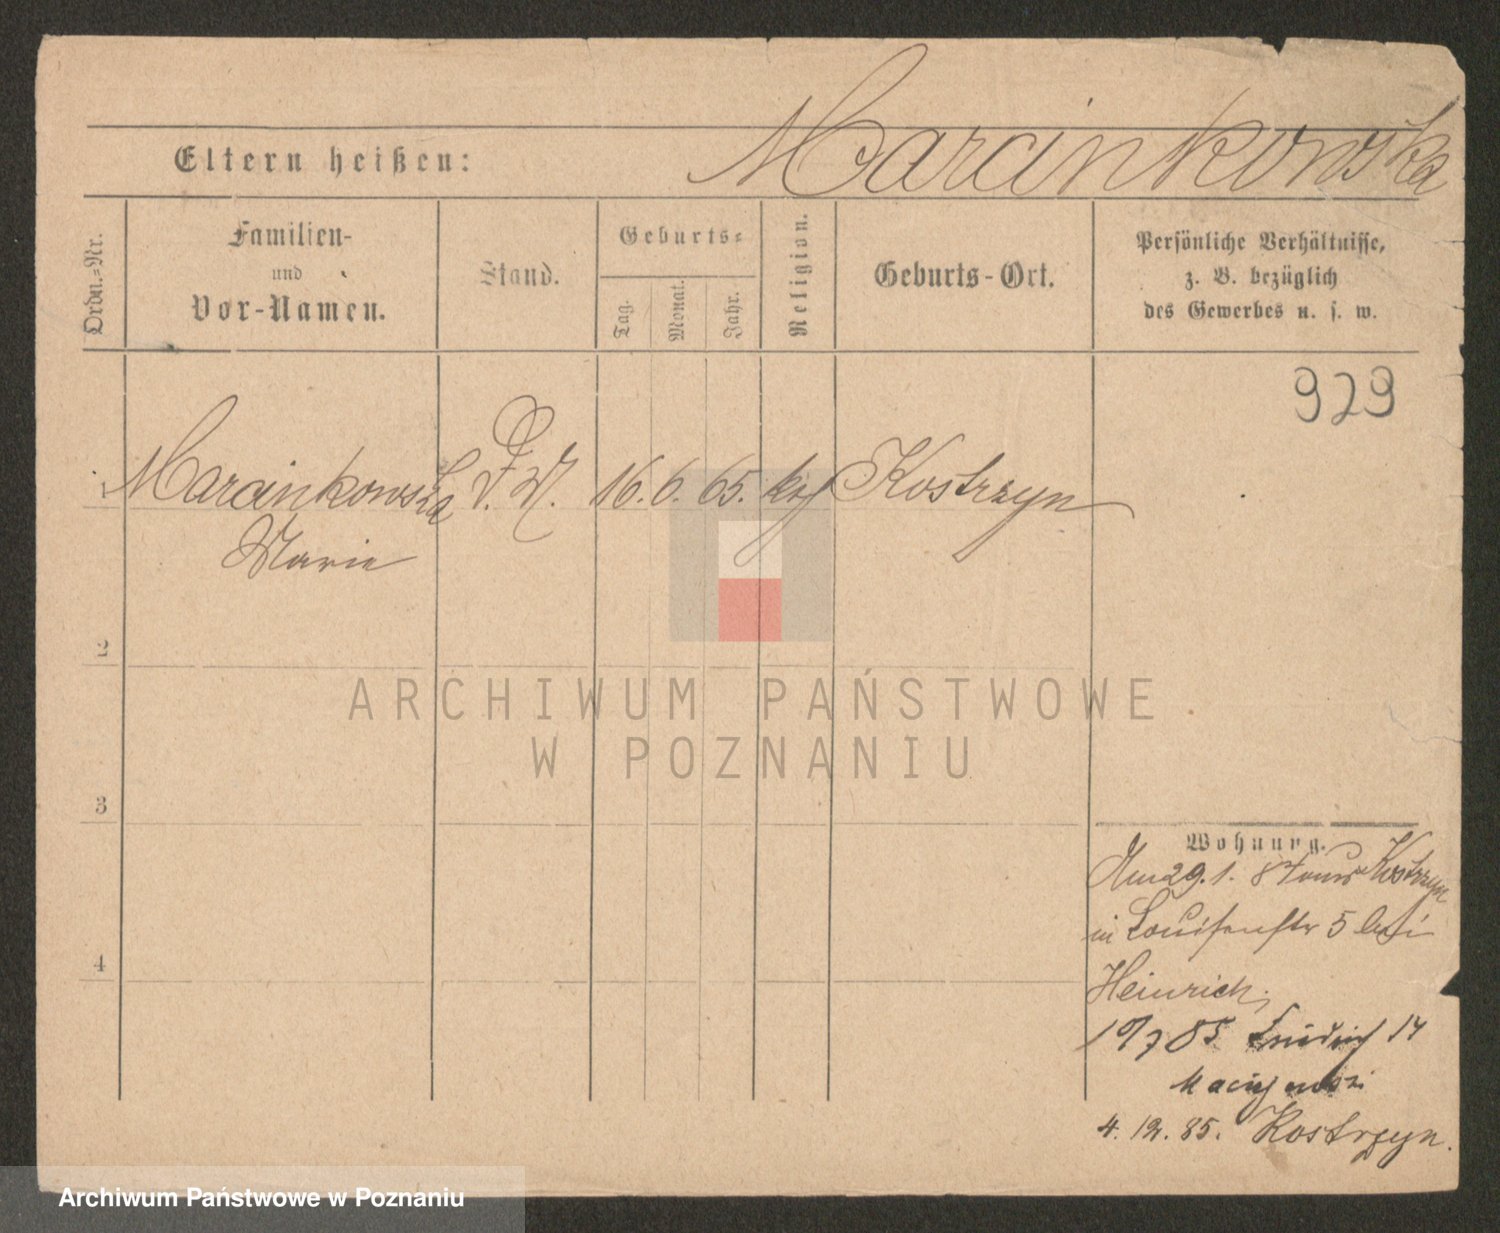 Marcinkowska
Eltern heißen:
Ordn.=Nr.
Familien-
und
Vor-Namen.
Stand.
Geburts=
Tag.
Monat.
Jahr.
Religion.
Geburts-Ort.
Persönliche Verhältnisse,
z. B. bezüglich
des Gewerbes u. s. w.
929
1 Marcinkowska 16. 6. 65. kath Kostrzyn
Marie
2
ARCHIWUM PAŃSTWOWE
W POZNANIU
3
Wohnung.
29.1. Kostrzyn
in Louisenstr 5 bei
Heinrich
4
85 14
4. 12. 85. Kostrzyn.
Archiwum Państwowe w Poznaniu